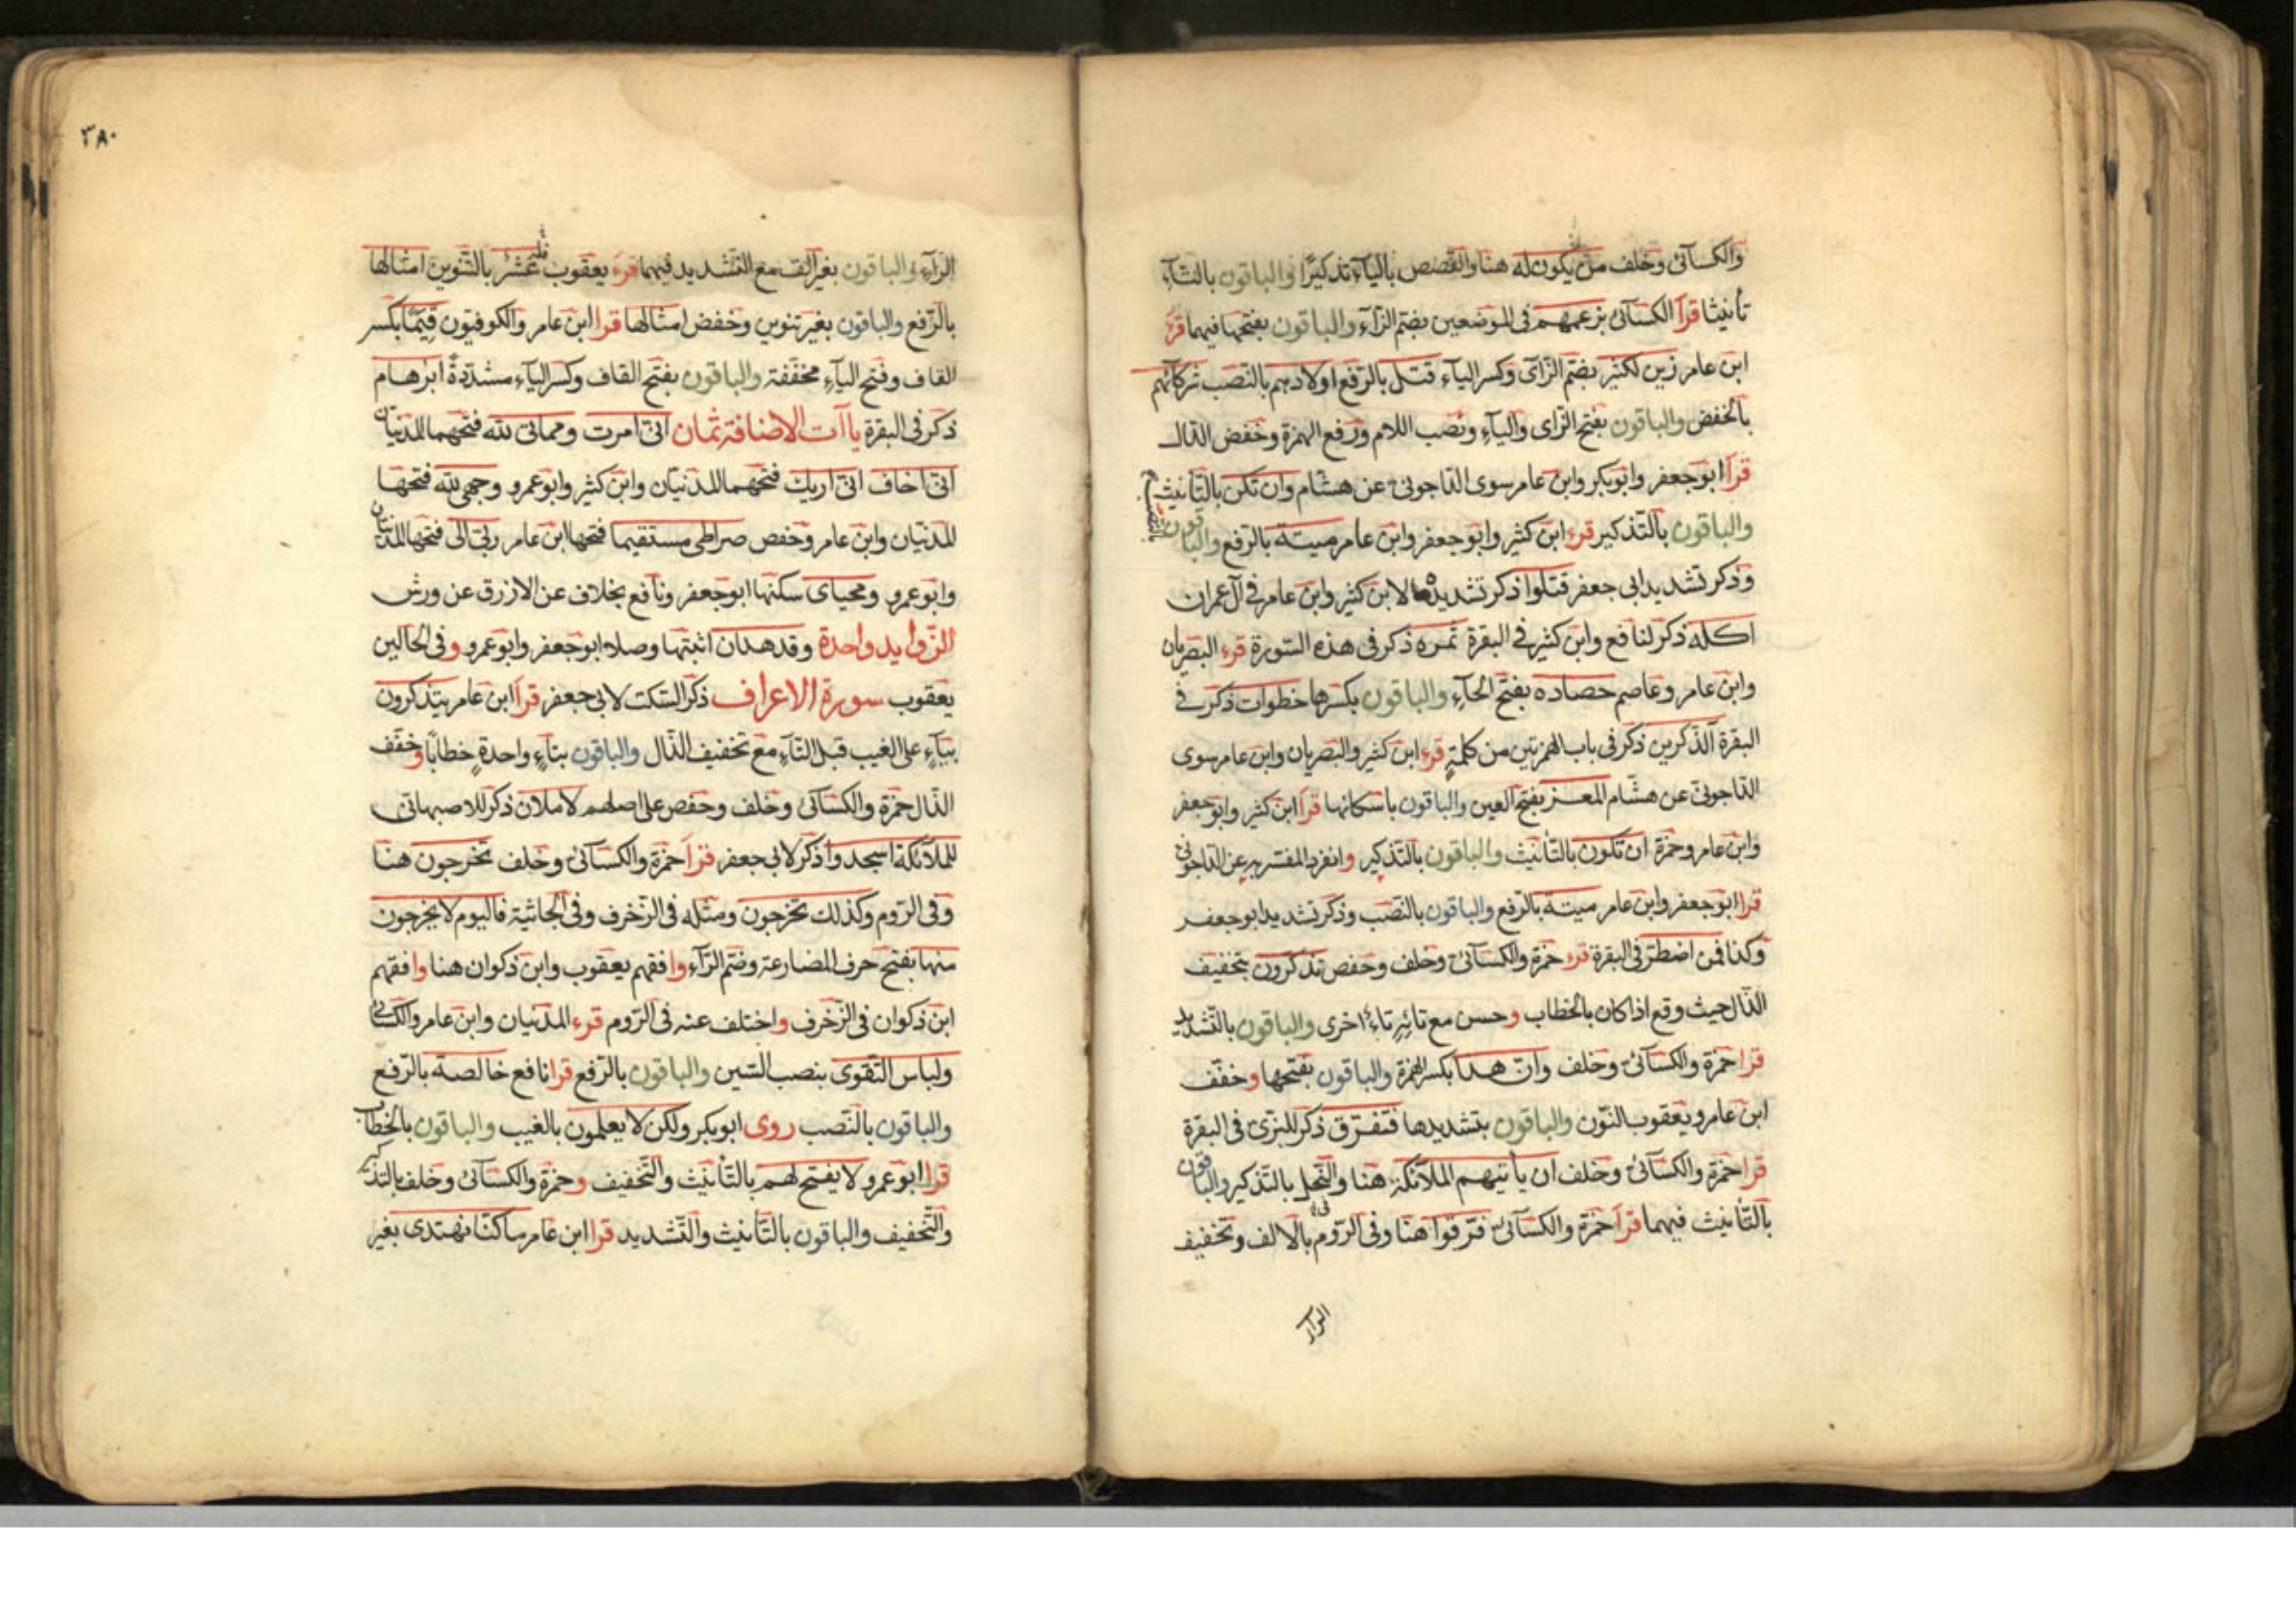 والكسآئى وخلف من يكون له هنا والقصص باليآء تذكيرًا والباقون بالتآء
تأنيثا قرأ الكسآئى بزعمهم فى الموضعين بضم الزآء والباقون بفتحها فيهما قرء
ابن عامر زين لكثير بضم الزآى وكسر اليآء قتل بالرفع اولادهم بالنصب شركائهم
بالخفض والباقون بفتح الزاى واليآء ونصب اللام ورفع الهمزة وخفض الدال
قرأ ابو جعفر وابو بكر وابن عامر سوى الداجونى عن هشام وان تكن بالتأنيث
والباقون بالتذكير قرء ابن كثير وابو جعفر وابن عامر ميتة بالرفع والباقون
بالنصب
وذكر تشديد ابى جعفر قتلوا ذكر تشديدها لابن كثير وابن عامر فى آل عمران
اكله ذكر لنافع وابن كثير فى البقرة ثمره ذكر فى هذه السورة قرء البصريان
وابن عامر وعاصم حصاده بفتح الحآء والباقون بكسرها خطوات ذكر فى
البقرة آلذكرين ذكر فى باب الهمزتين من كلمةٍ قرء ابن كثير والبصريان وابن عامر سوى
الداجونى عن هشام المعز بفتح العين والباقون باسكانها قرأ ابن كثير وابو جعفر
وابن عامر وحمزة ان تكون بالتأنيث والباقون بالتذكير وانفرد المفسر به عن الداجونى
قرا ابو جعفر وابن عامر ميتة بالرفع والباقون بالنصب وذكر تشديد ابو جعفر
وكذا فمن اضطر فى البقرة قرء حمزة والكسآئى وخلف وحفص تذكرون بتخفيف
الذال حيث وقع اذا كان بالخطاب وحسن مع تائه تاء اخرى والباقون بالتشديد
قرا حمزة والكسآئى وخلف وان هذا بكسر الهمزة والباقون بفتحها وخفف
ابن عامر ويعقوب النون والباقون بتشديدها فتفرق ذكر للبزى فى البقرة
قرا حمزة والكسآئى وخلف ان يأتيهم الملآئكة هنا والنحل بالتذكير والباقون
بالتأنيث فيهما قرأ حمزة والكسآئى فرقوا هنا وفى الروم بالالف وتخفيف
الرآء
٣٨٠
الرآء والباقون بغير الف مع التشديد فيهما قرء يعقوب عشر بالتنوين امثالها
بالرفع والباقون بغير تنوين وخفض امثالها قرا ابن عامر والكوفيون قيمًا بكسر
القاف وفتح اليآء مخففة والباقون بفتح القاف وكسر اليآء مشددةً ابرهام
ذكر فى البقرة ياآت الاضافة ثمان انى امرت ومماتى لله فتحهما المدنيان
انى اخاف انى اريك فتحهما المدنيان وابن كثير وابو عمرو وجهى لله فتحها
المدنيان وابن عامر وحفص صراطى مستقيما فتحها ابن عامر ربى الى فتحها المدنيان
وابو عمرو ومحياى سكنها ابو جعفر ونافع بخلاف عن الازرق عن ورش
الزوايد واحدة وقد هدان اثبتها وصلا ابو جعفر وابو عمرو وفى الحالين
يعقوب سورة الاعراف ذكر السكت لابى جعفر قرأ ابن عامر يتذكرون
بيآءٍ على الغيب قبل التآء مع تخفيف الذال والباقون بتاءٍ واحدةٍ خطابًا وخفف
الذال حمزة والكسآئى وخلف وحفص على اصلهم لاملان ذكر للاصبهانى
للملآئكة اسجدوا ذكر لابى جعفر قرأ حمزة والكسآئى وخلف تخرجون هنا
وفى الروم وكذلك تخرجون ومثله فى الزخرف وفى الجاثية فاليوم لا يخرجون
منها بفتح حرف المضارعة وضم الرآء وافقهم يعقوب وابن ذكوان هنا وافقهم
ابن ذكوان فى الزخرف واختلف عنه فى الروم قرء المدنيان وابن عامر والكسائى
ولباس التقوى بنصب السين والباقون بالرفع قرا نافع خالصة بالرفع
والباقون بالنصب روى ابو بكر ولكن لا يعلمون بالغيب والباقون بالخطاب
قرا ابو عمرو لا يفتح لهم بالتأنيث والتخفيف وحمزة والكسآئى وخلف بالتذكير
والتخفيف والباقون بالتأنيث والتشديد قرا ابن عامر ما كنا لنهتدى بغير